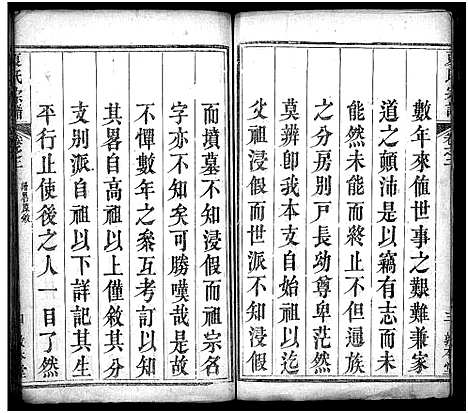 數年來值世事之艱難兼家
道之顛沛是以竊有志而未
能然未能而終止不但通族
之分房別戶長幼尊卑茫然
莫辨卽我支本自始祖以迄
父祖浸假而世派不知浸假
而墳墓不知浸假而祖宗名
字亦不知矣可勝嘆哉是故
不憚數年之粲互考訂以知
其畧自承祖以上僅敘其分
支別派自祖以下詳記其生
平行止使後之人一目了然
氏宗譜
卷之二